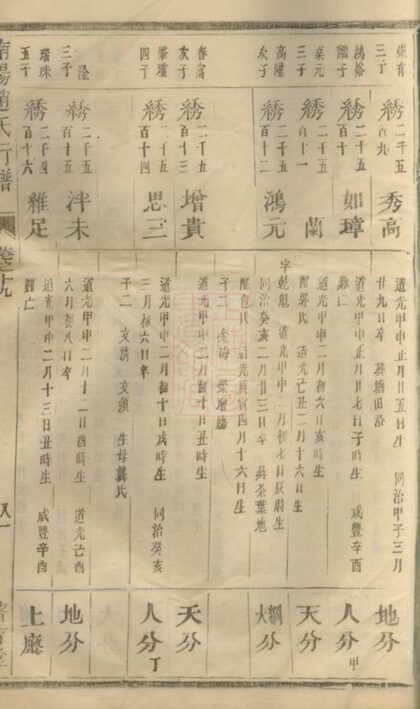 三子
綉二千五百九
秀高
道光甲申正月廿五日生 同治甲子三月
廿九日卒 葬塘田浴
地分
鴻裕
綉二千五百十
如璋
道光甲申正月廿七日子時生 咸豐辛酉
人分甲
桌元
綉二千五百十一
蘭
道光甲申二月初六日亥時生
道光己丑二月十六日生
天分
高陞
次子
綉二千五百十二
鴻元
字乾魁 道光甲申二月初七日辰時生
同治癸亥二月廿三日卒 葬茶葉地
道光庚寅四月十六日生
子二
大綱分
春富
次子
綉二千五百十三
增貴
道光甲申二月初十日丑時生
天分
四子
綉二千五百十四
思三
道光甲申二月初十日戌時生 同治癸亥
三月初六日卒
子二 友漢 友須 生母龔氏
人分丁
澄
三子
綉二千五百十五
泮未
道光甲申二月十二日酉時生 道光己酉
六月初八日卒
地分
瑞珠
五子
綉二千五百十六
維足
道光甲申二月十三日丑時生 咸豐辛酉
難亡
上廳
南陽趙氏宗譜
卷之九